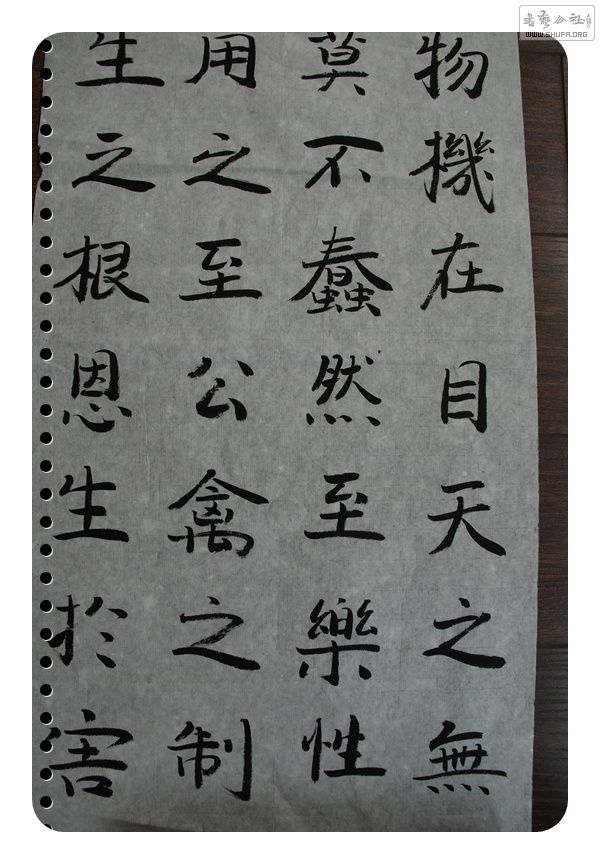 物機在目天之無
莫不蠢然至樂性
用之至公禽之制
生之根恩生於害
書藝公社
WWW.SHUFA.ORG